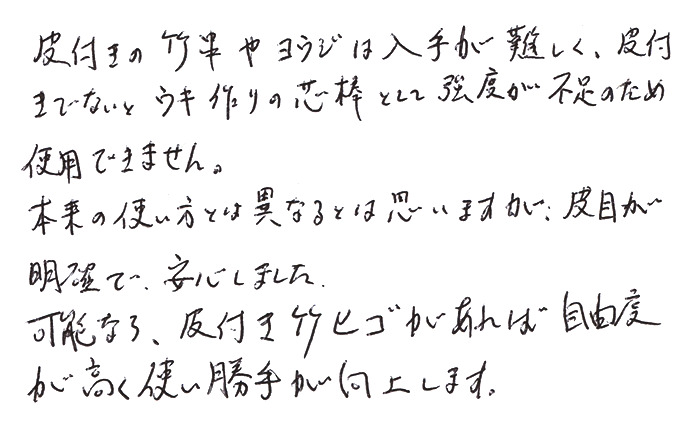 皮付きの竹串やヨウジは入手が難しく、皮付
きでないとウキ作りの芯棒として強度が不足のため
使用できません。
本来の使い方とは異なるとは思いますが、皮目が
明確で、安心しました.
可能なら、皮付き竹ヒゴがあれば自由度
が高く使い勝手が向上します。